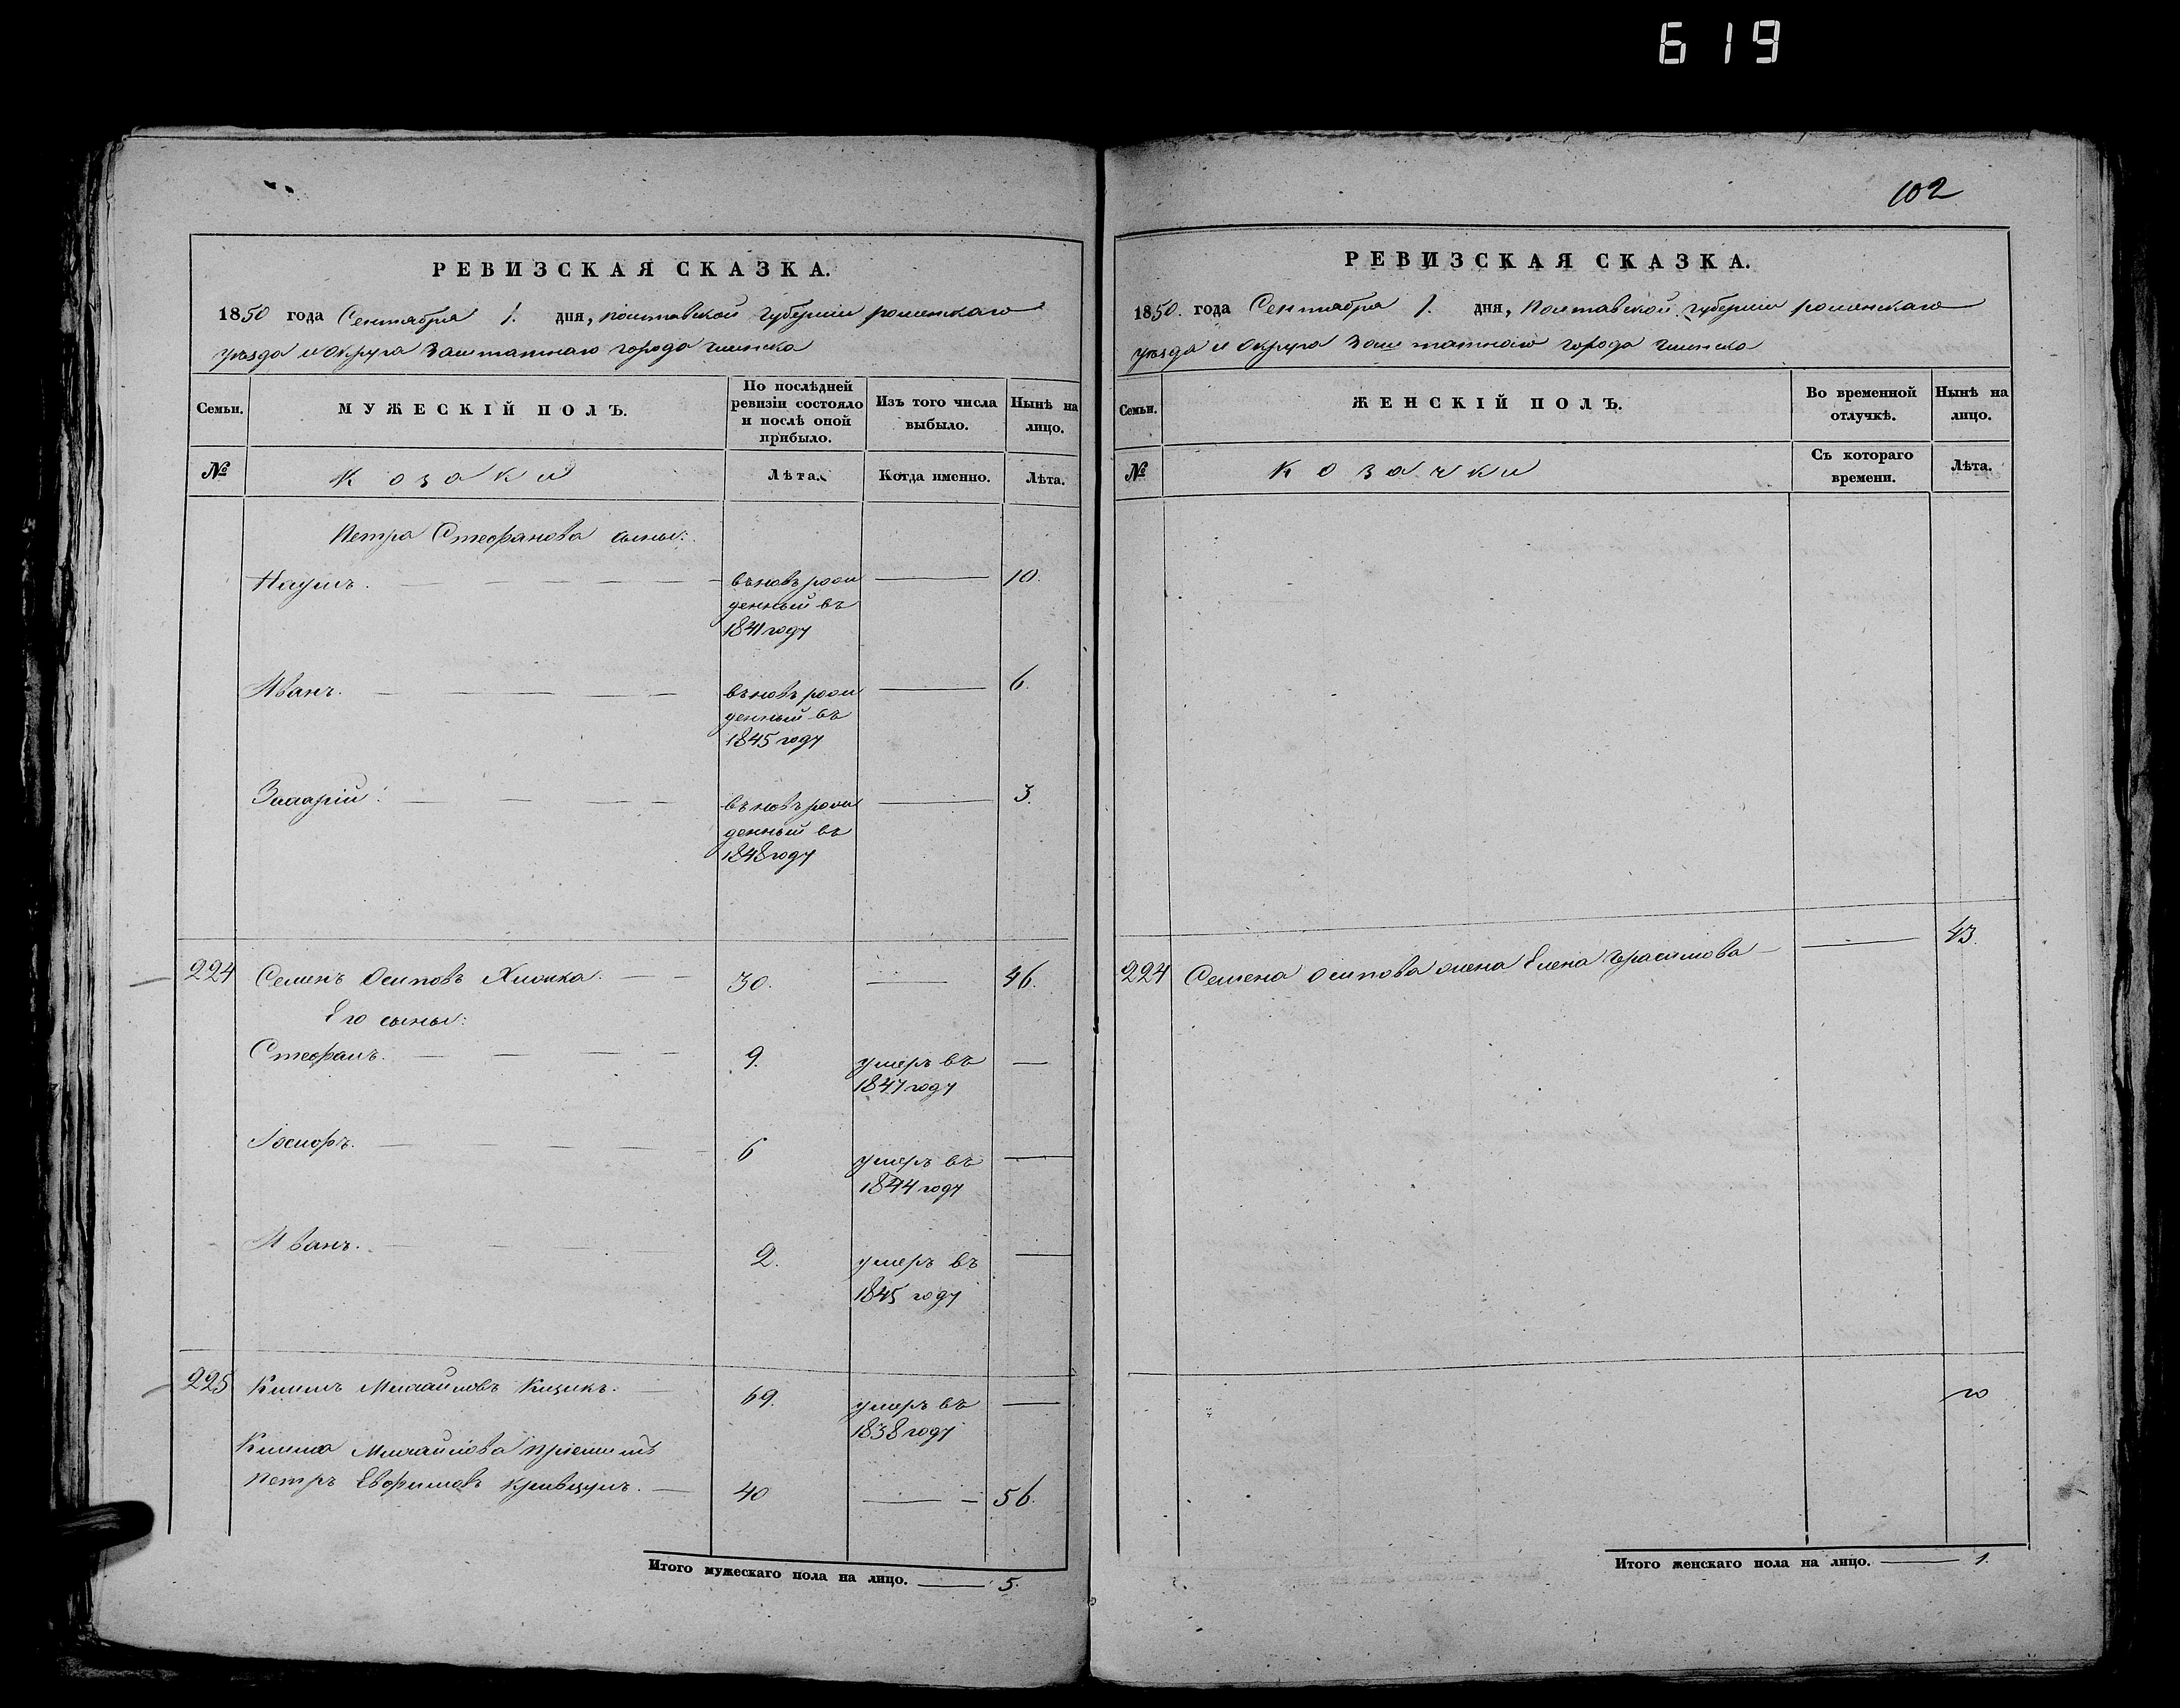 619
РЕВИЗСКАЯ СКАЗКА.
1850 года Сентября 1. дня, полтавской губернии роменскаго
уѣзда и округа заштатнаго города глинска
Семьи.
МУЖЕСКІЙ ПОЛЪ.
По послѣдней
ревизіи состояло
и послѣ оной
прибыло.
Изъ того числа
выбыло.
Нынѣ на
лицо.
№
Козаки
Лѣта.
Когда именно.
Лѣта.
Петра Стефанова сыны:
Наумъ. въновь рож 10.
денный въ
1841 году
Иванъ. въновь рож 6.
денный въ
1845 году
Захарій. въновь рож 3.
денный въ
1848 году
224 Семенъ Осиповъ 30. 46.
Его сыны:
Стефанъ. 9. умеръ въ
1847 году
Іосифъ. 6 умеръ въ
1844 году
Иванъ. 2. умеръ въ
1845 году
225 Климъ Михайловъ Кицикъ. 69. умеръ въ
1838 году
Клима Михайлова пріемышъ
Петръ Евфимовъ Кривцунъ. 40 56.
Итого мужескаго пола на лицо. 5.
102
РЕВИЗСКАЯ СКАЗКА.
1850. года Сентября 1. дня, Полтавской губернии роменскаго
уѣзда и округа заштатнаго города глинска
Семьи.
ЖЕНСКІЙ ПОЛЪ.
Во временной
отлучкѣ.
Нынѣ на
лицо.
№
Козачки
Съ котораго
времени.
Лѣта.
224 Семена Осипова жена Елена Герасимова 43.
Итого женскаго пола на лицо. 1.